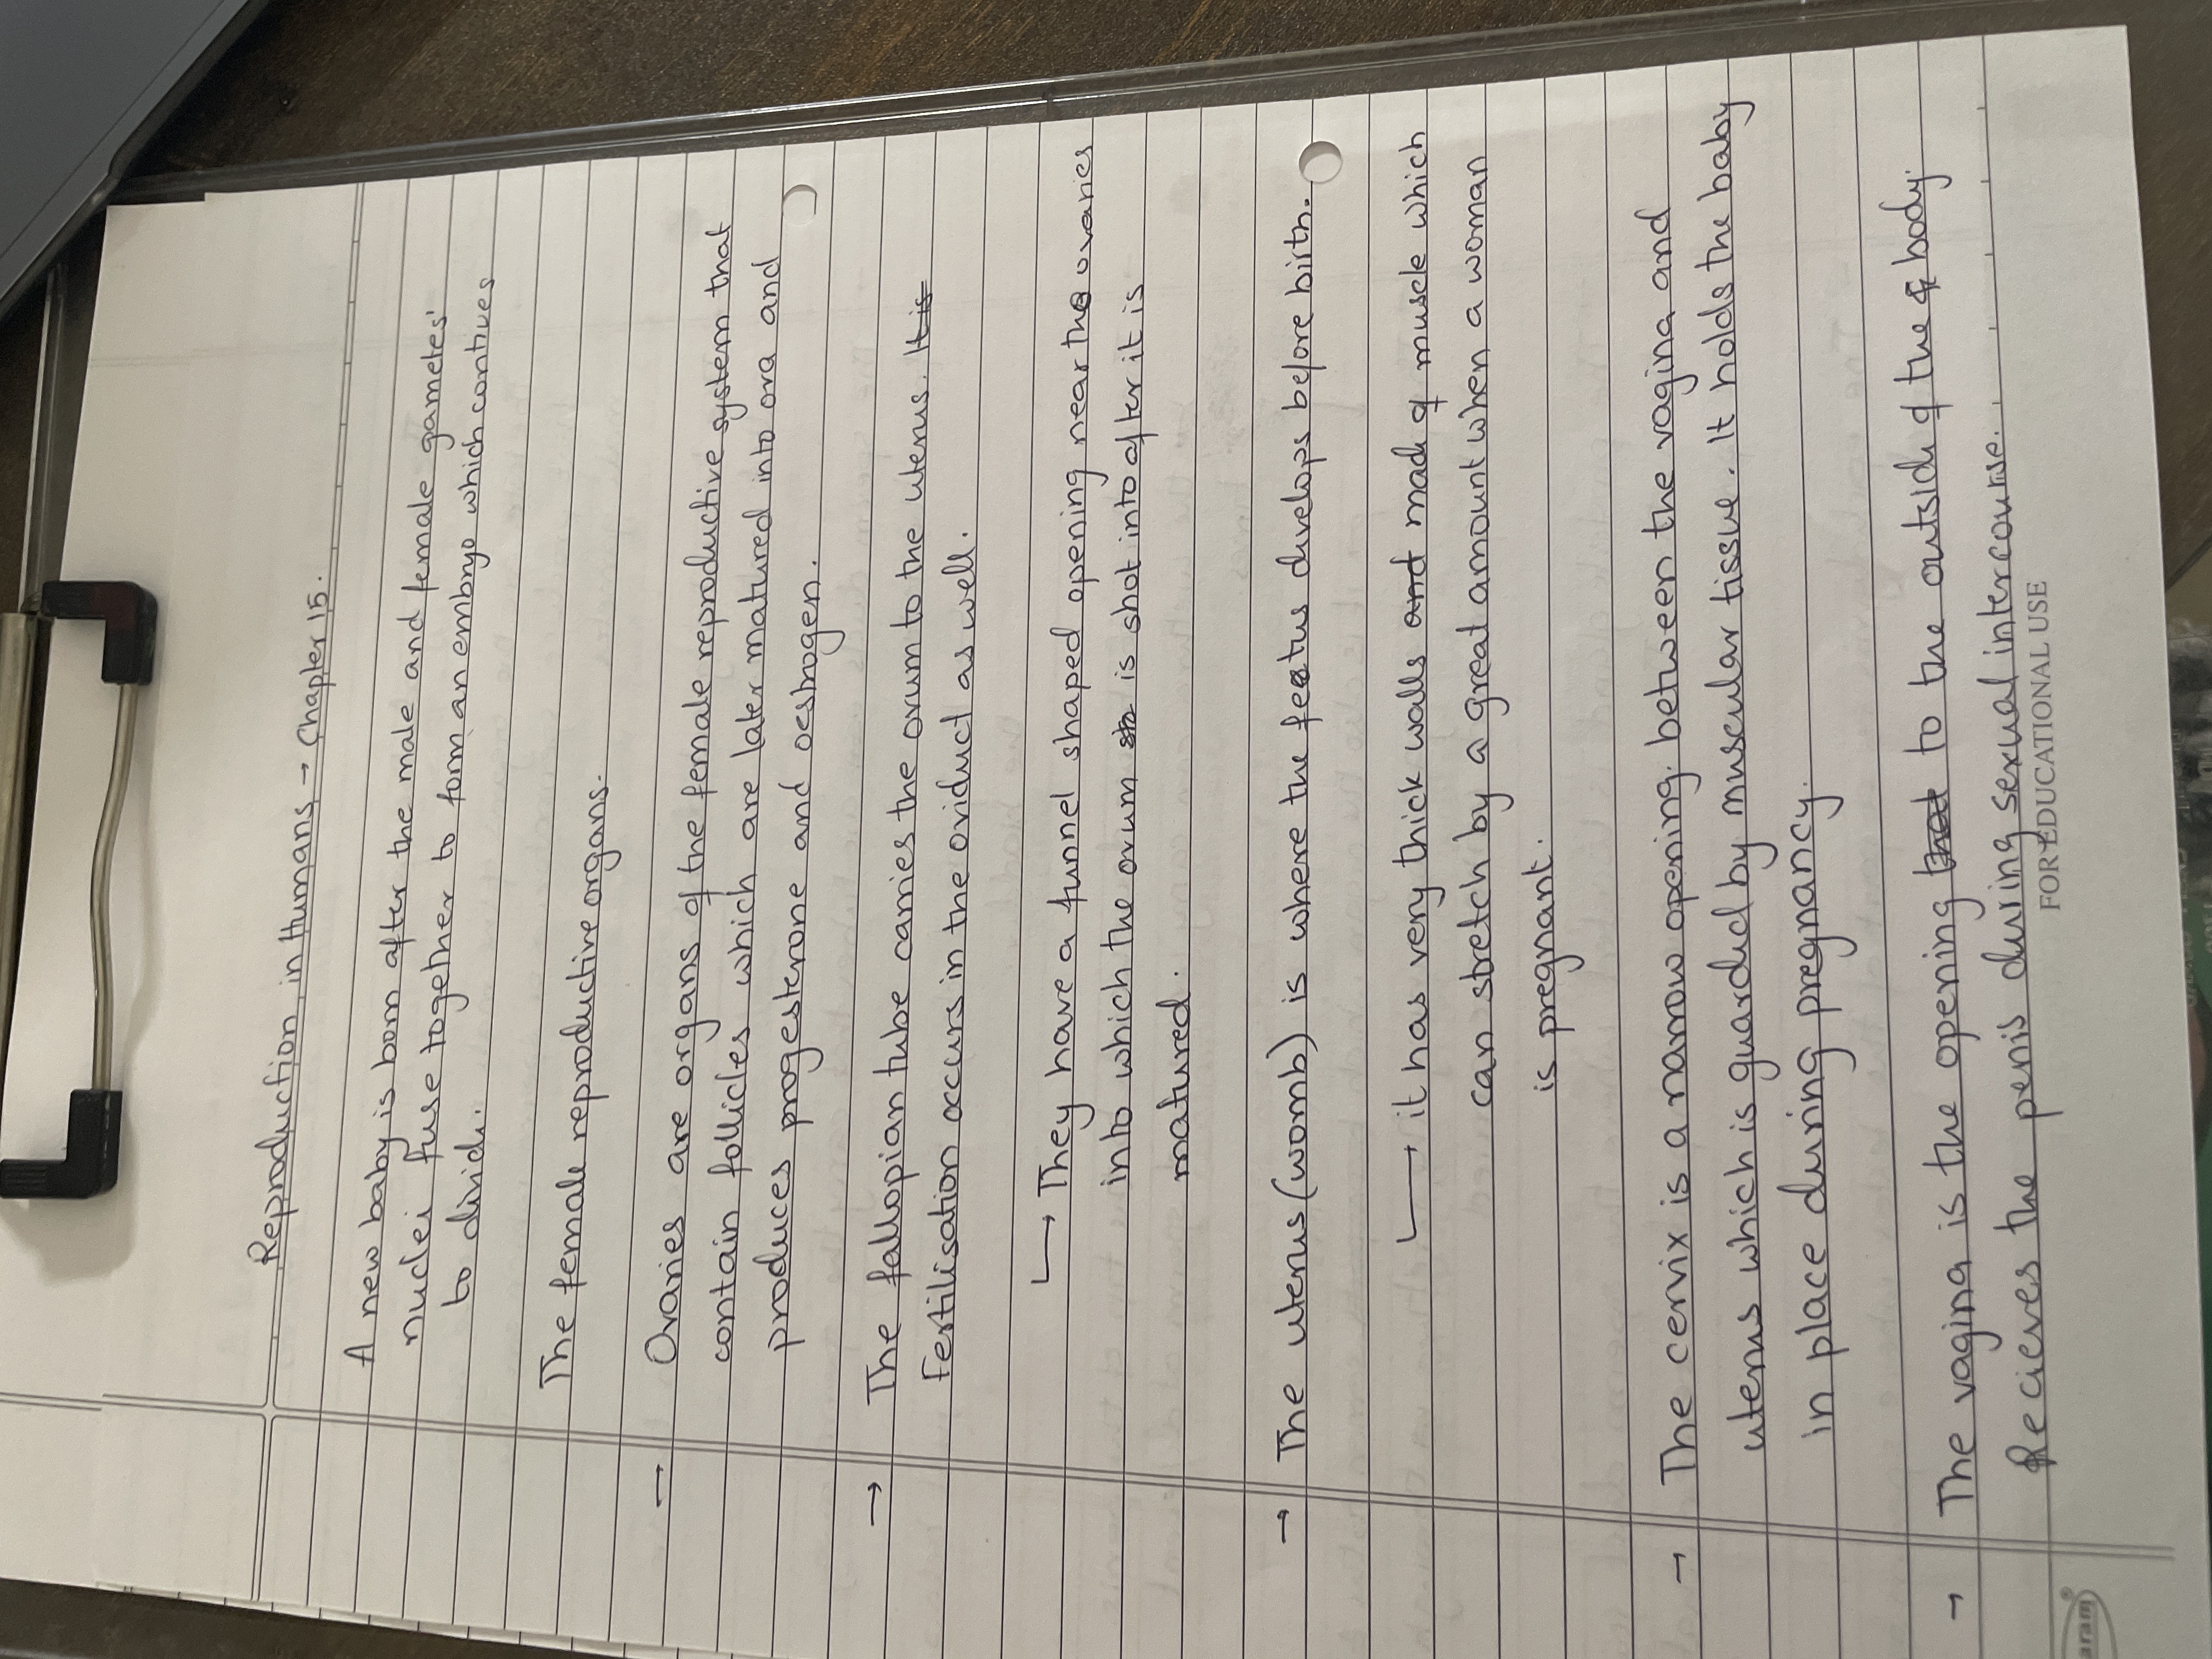 Reproduction in Humans → Chapter 15.
A new baby is born after the male and female gametes'
nuclei fuse together to form an embryo which contiues
to divide.
The female reproductive organs.
— Ovaries are organs of the female reproductive system that
contain follicles which are later matured into ova and
produces progesterone and oestrogen.
→ The fallopian tube carries the ovum to the uterus. It is
Fertilisation occurs in the oviduct as well.
↳ They have a funnel shaped opening near the ovaries
into which the ovum is shot into after it is
matured.
→ The uterus (womb) is where the feotus develops before birth.
↳ it has very thick walls and made of muscle which
can stretch by a great amount when a woman
is pregnant.
→ The cervix is a narrow opening. between the vagina and
uterus which is guarded by muscular tissue. It holds the baby
in place during pregnancy.
→ The vagina is the opening that to the outside of the body.
Recieves the penis during sexual intercourse.
FOR EDUCATIONAL USE
aram